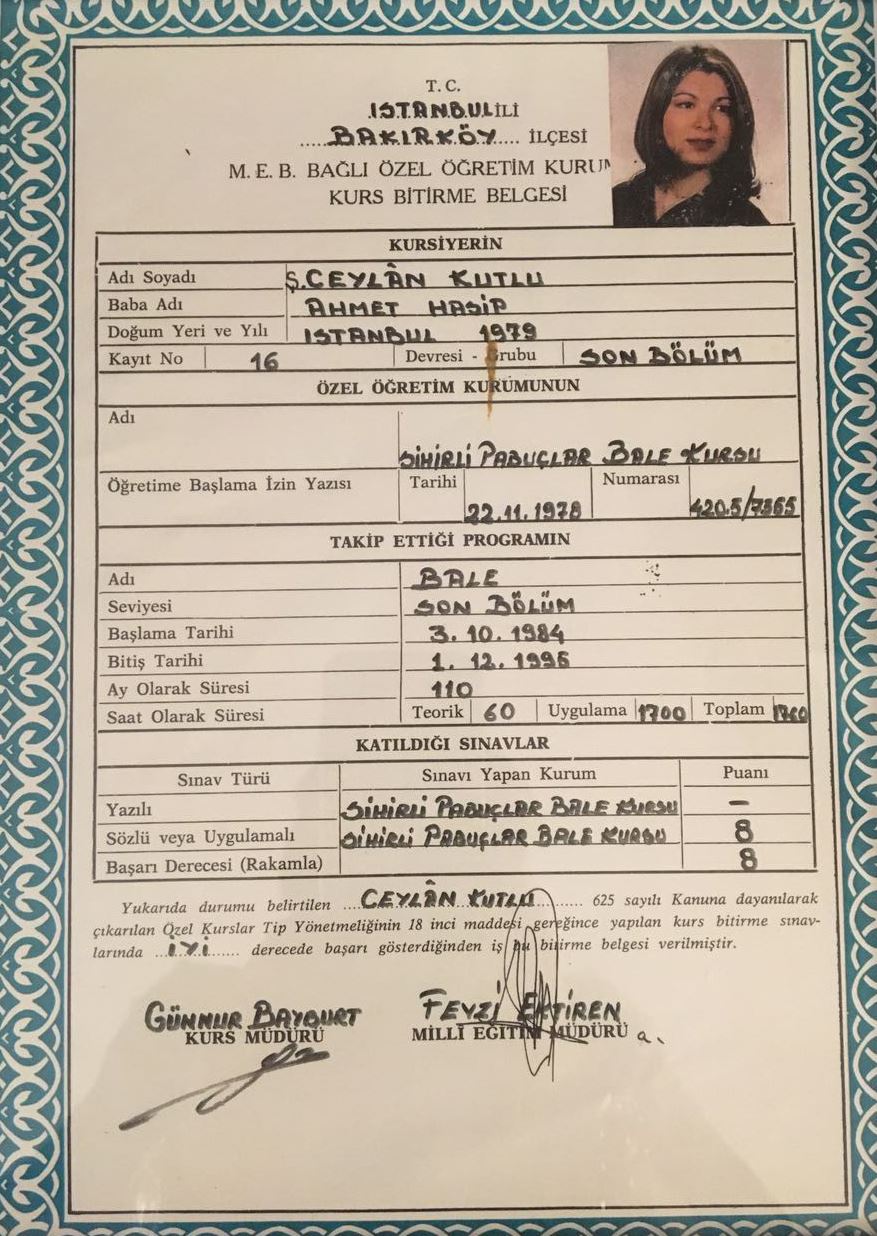 T. C.
İSTANBUL İLİ
.....BAKIRKÖY..... İLÇESİ
M. E. B. BAĞLI ÖZEL ÖĞRETİM KURUM
KURS BİTİRME BELGESİ
KURSİYERİN
Adı Soyadı Ş. CEYLÂN KUTLU
Baba Adı AHMET HASİP
Doğum Yeri ve Yılı İSTANBUL 1979
Kayıt No 16 Devresi - Grubu SON BÖLÜM
ÖZEL ÖĞRETİM KURUMUNUN
Adı
SİHİRLİ PABUÇLAR BALE KURSU
Öğretime Başlama İzin Yazısı Tarihi Numarası
22.11.1978 420.5/7365
TAKİP ETTİĞİ PROGRAMIN
Adı BALE
Seviyesi SON BÖLÜM
Başlama Tarihi 3. 10. 1984
Bitiş Tarihi 1. 12. 1996
Ay Olarak Süresi 110
Saat Olarak Süresi Teorik 60 Uygulama 1700 Toplam 1760
KATILDIĞI SINAVLAR
Sınav Türü Sınavı Yapan Kurum Puanı
Yazılı SİHİRLİ PABUÇLAR BALE KURSU —
Sözlü veya Uygulamalı SİHİRLİ PABUÇLAR BALE KURSU 8
Başarı Derecesi (Rakamla) 8
Yukarıda durumu belirtilen ....CEYLÂN KUTLU........ 625 sayılı Kanuna dayanılarak
çıkarılan Özel Kurslar Tip Yönetmeliğinin 18 inci maddesi gereğince yapılan kurs bitirme sınav-
larında ...İYİ...... derecede başarı gösterdiğinden iş bu bitirme belgesi verilmiştir.
GÜNNUR BAYGURT FEVZİ EKTİREN
KURS MÜDÜRÜ MİLLÎ EĞİTİM MÜDÜRÜ a.